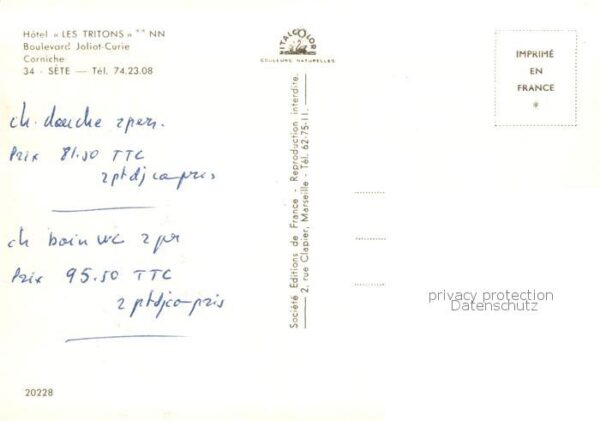 Hôtel « LES TRITONS » ** NN
Boulevard Joliot-Curie
Corniche
34 - SÈTE — Tél. 74.23.08
VITALCOLOR
COULEURS NATURELLES
IMPRIMÉ
EN
FRANCE
*
ch. douche 2 pers.
Prix 81.50 TTC
2 ptdj compris
ch bain WC 2 pr
Prix 95.50 TTC
2 ptdj compris
Société Editions de France - Reproduction interdite.
2, rue Clapier, Marseille - Tél. 62-75-11.
privacy protection
Datenschutz
20228